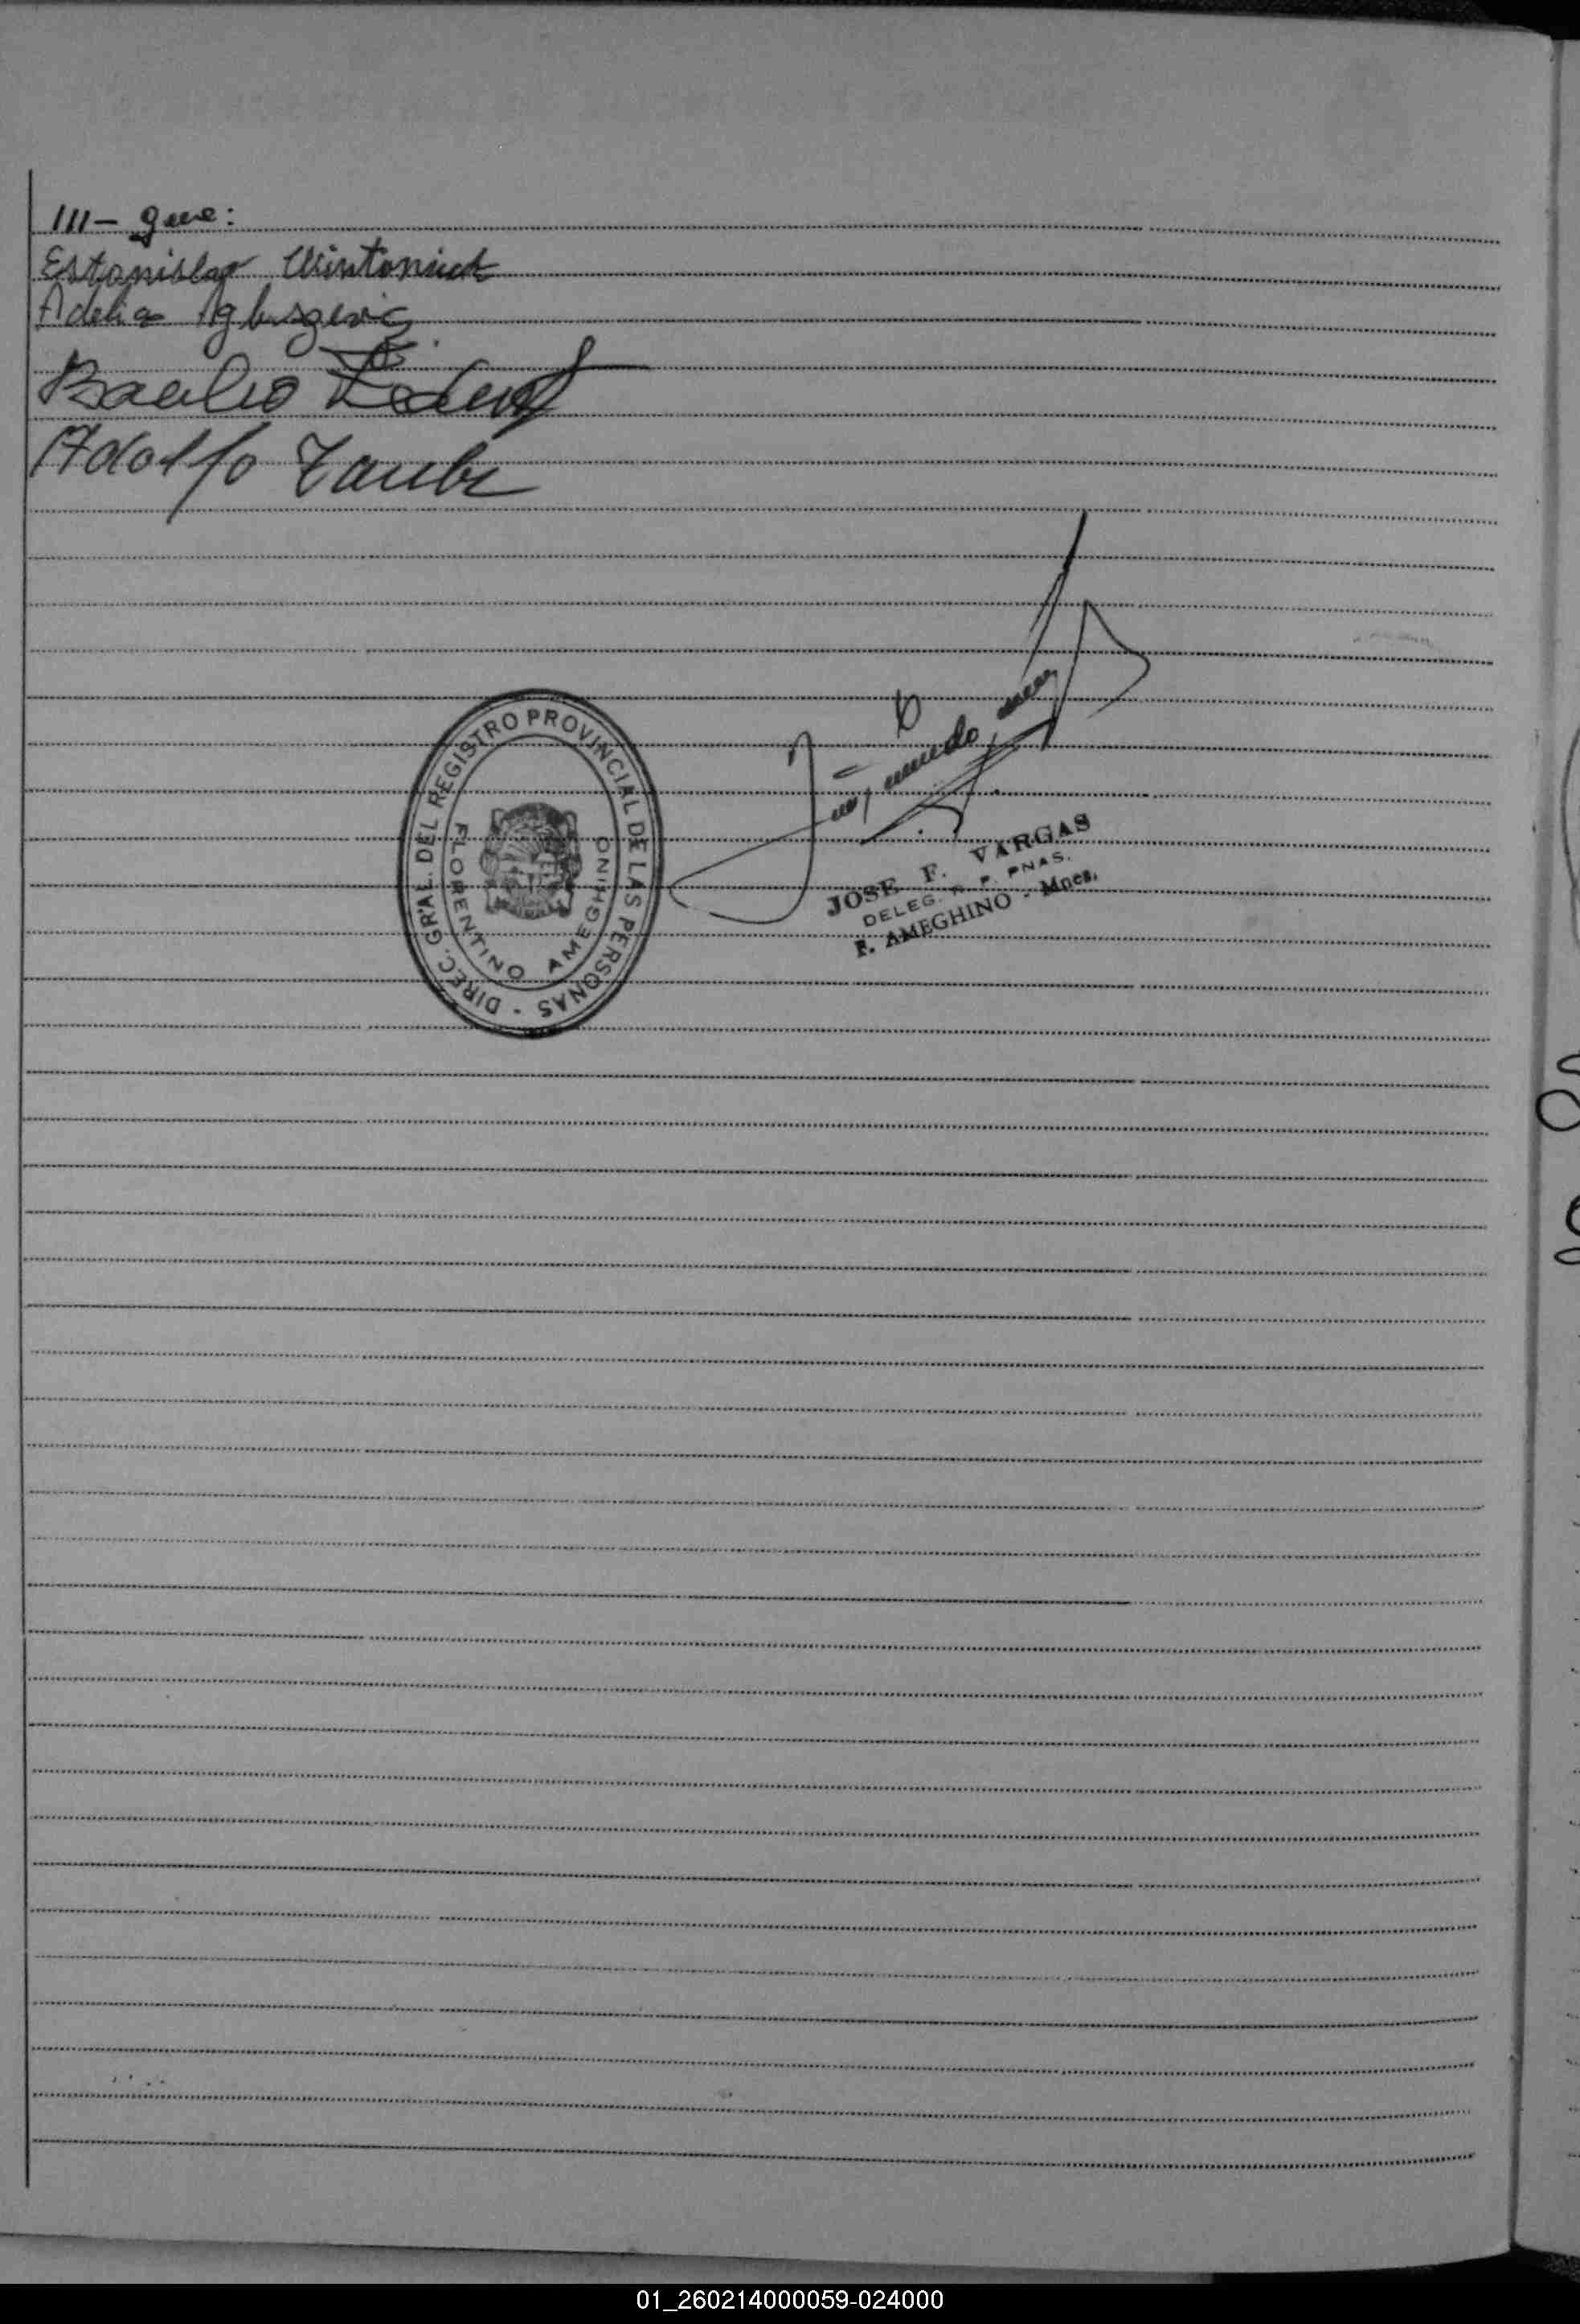 III- que:
Estanislao Wintoniuk
Adelia
Basilio
Adolfo Taube
DIREC. GRAL. DEL REGISTRO PROVINCIAL DE LAS PERSONAS -
FLORENTINO AMEGHINO
JOSE F. VARGAS
DELEG. R. P. PNAS.
F. AMEGHINO - Mnes.
01_260214000059-024000